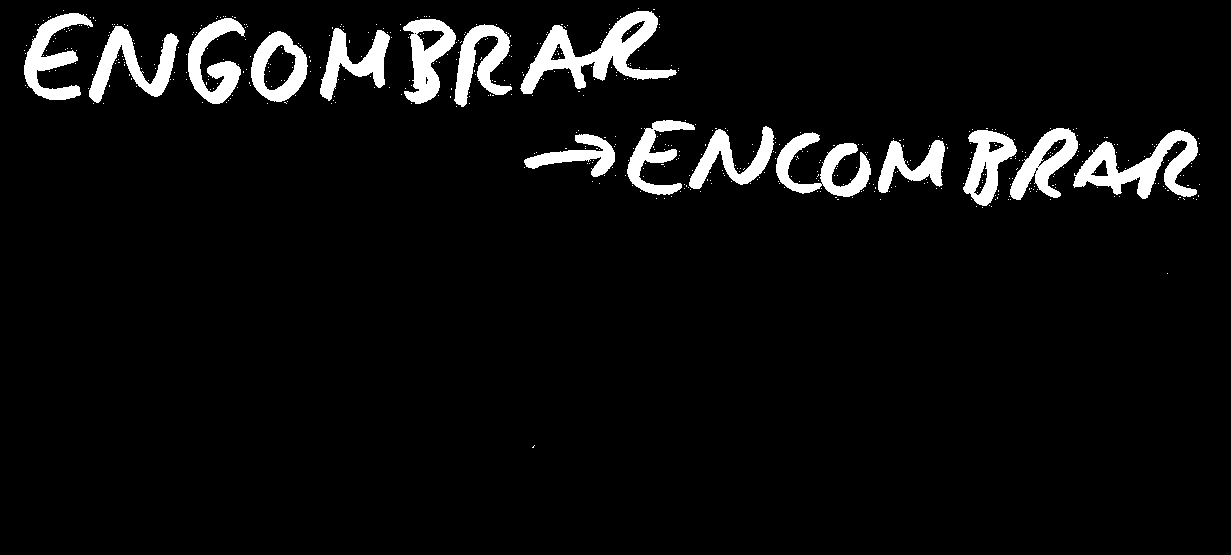 ENGOMBRAR
→ENCOMBRAR